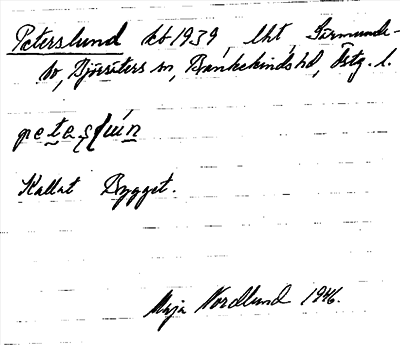 Peterslund kb 1939, lht, Surmunde-
bo, Björsäters sn, Bankekinds hd, Östg. l.
Kallat Bygget.
Maja Nordlund 1946.